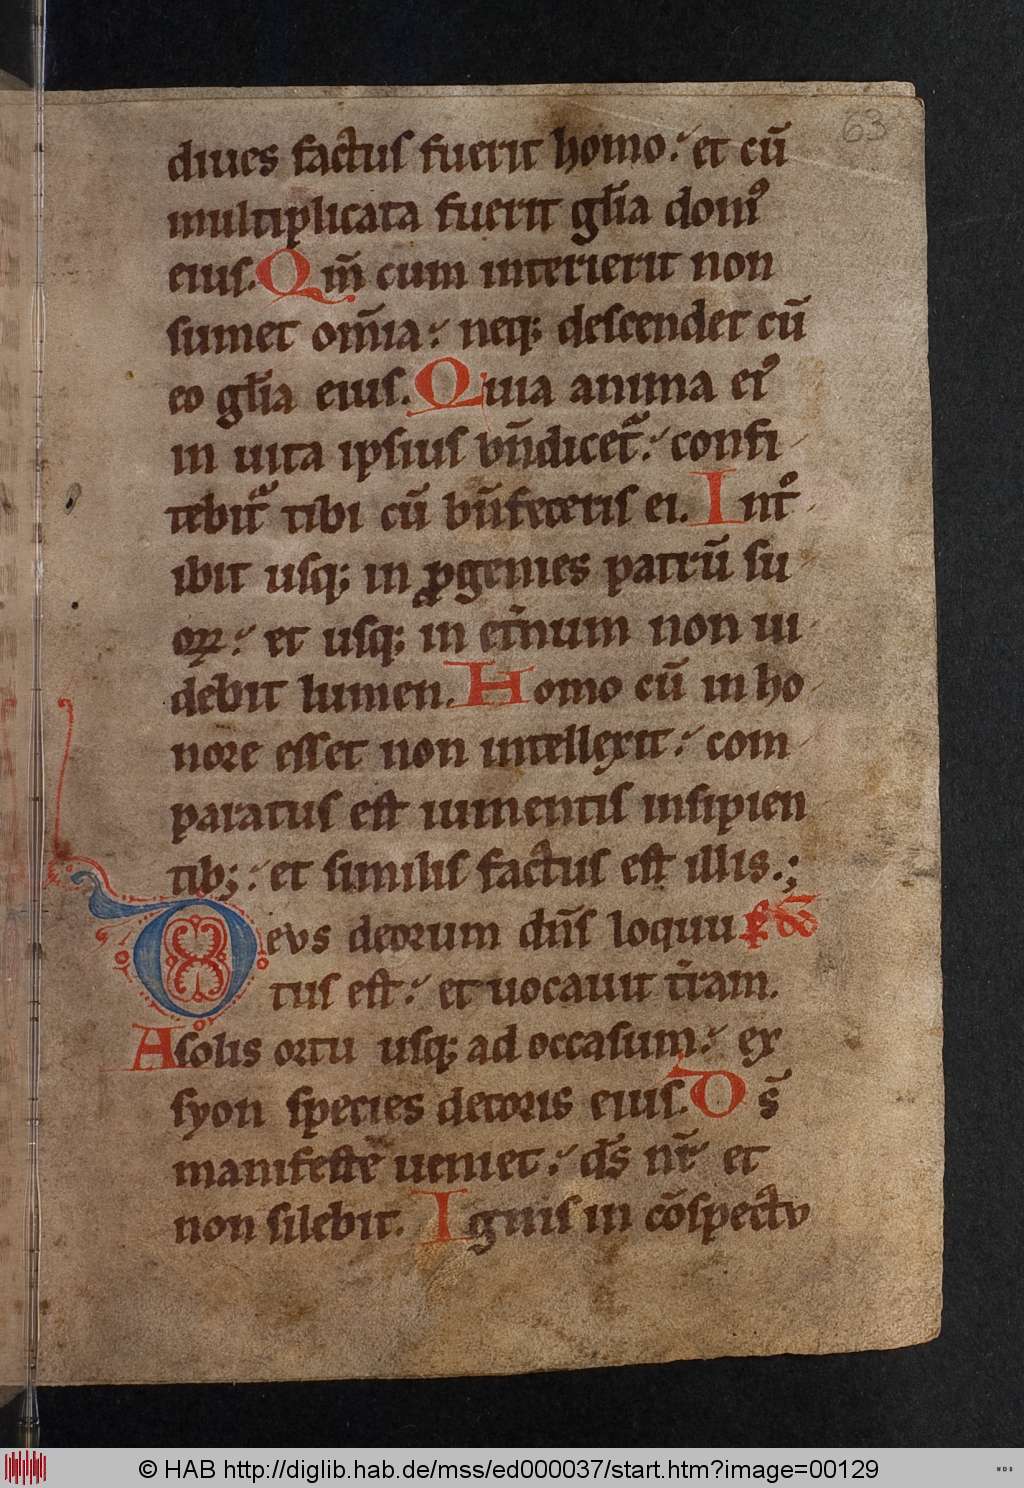 63
diues factus fuerit homo. et cū
multiplicata fuerit gl̄ia domꝰ
eius. Qm̄ cum interierit non
sumet om̄ia. neq; descendet cū
eo gl̄ia eius. Quia anima eiꝰ
in uita ipsius bn̄dicet᷑. confi
tebit᷑ tibi cū bn̄feceris ei. Int͛o
ibit usq; in ꝓgenies patrū su
oꝝ. et usq; in et͛num non ui
debit lumen. Homo cū in ho
nore esset non intellexit. com
paratus est iumentis insipien
tib; . et similis factus est illis.;
Deus deorum dn̄s loquu
tus est. et uocauit t͛ram.
A solis ortu usq; ad occasum. ex
syon species decoris eius. D s̄
manifeste ueniet. ds̄ nr̄ et
non silebit. Ignis in cōspectu
© HAB http://diglib.hab.de/mss/ed000037/start.htm?image=00129